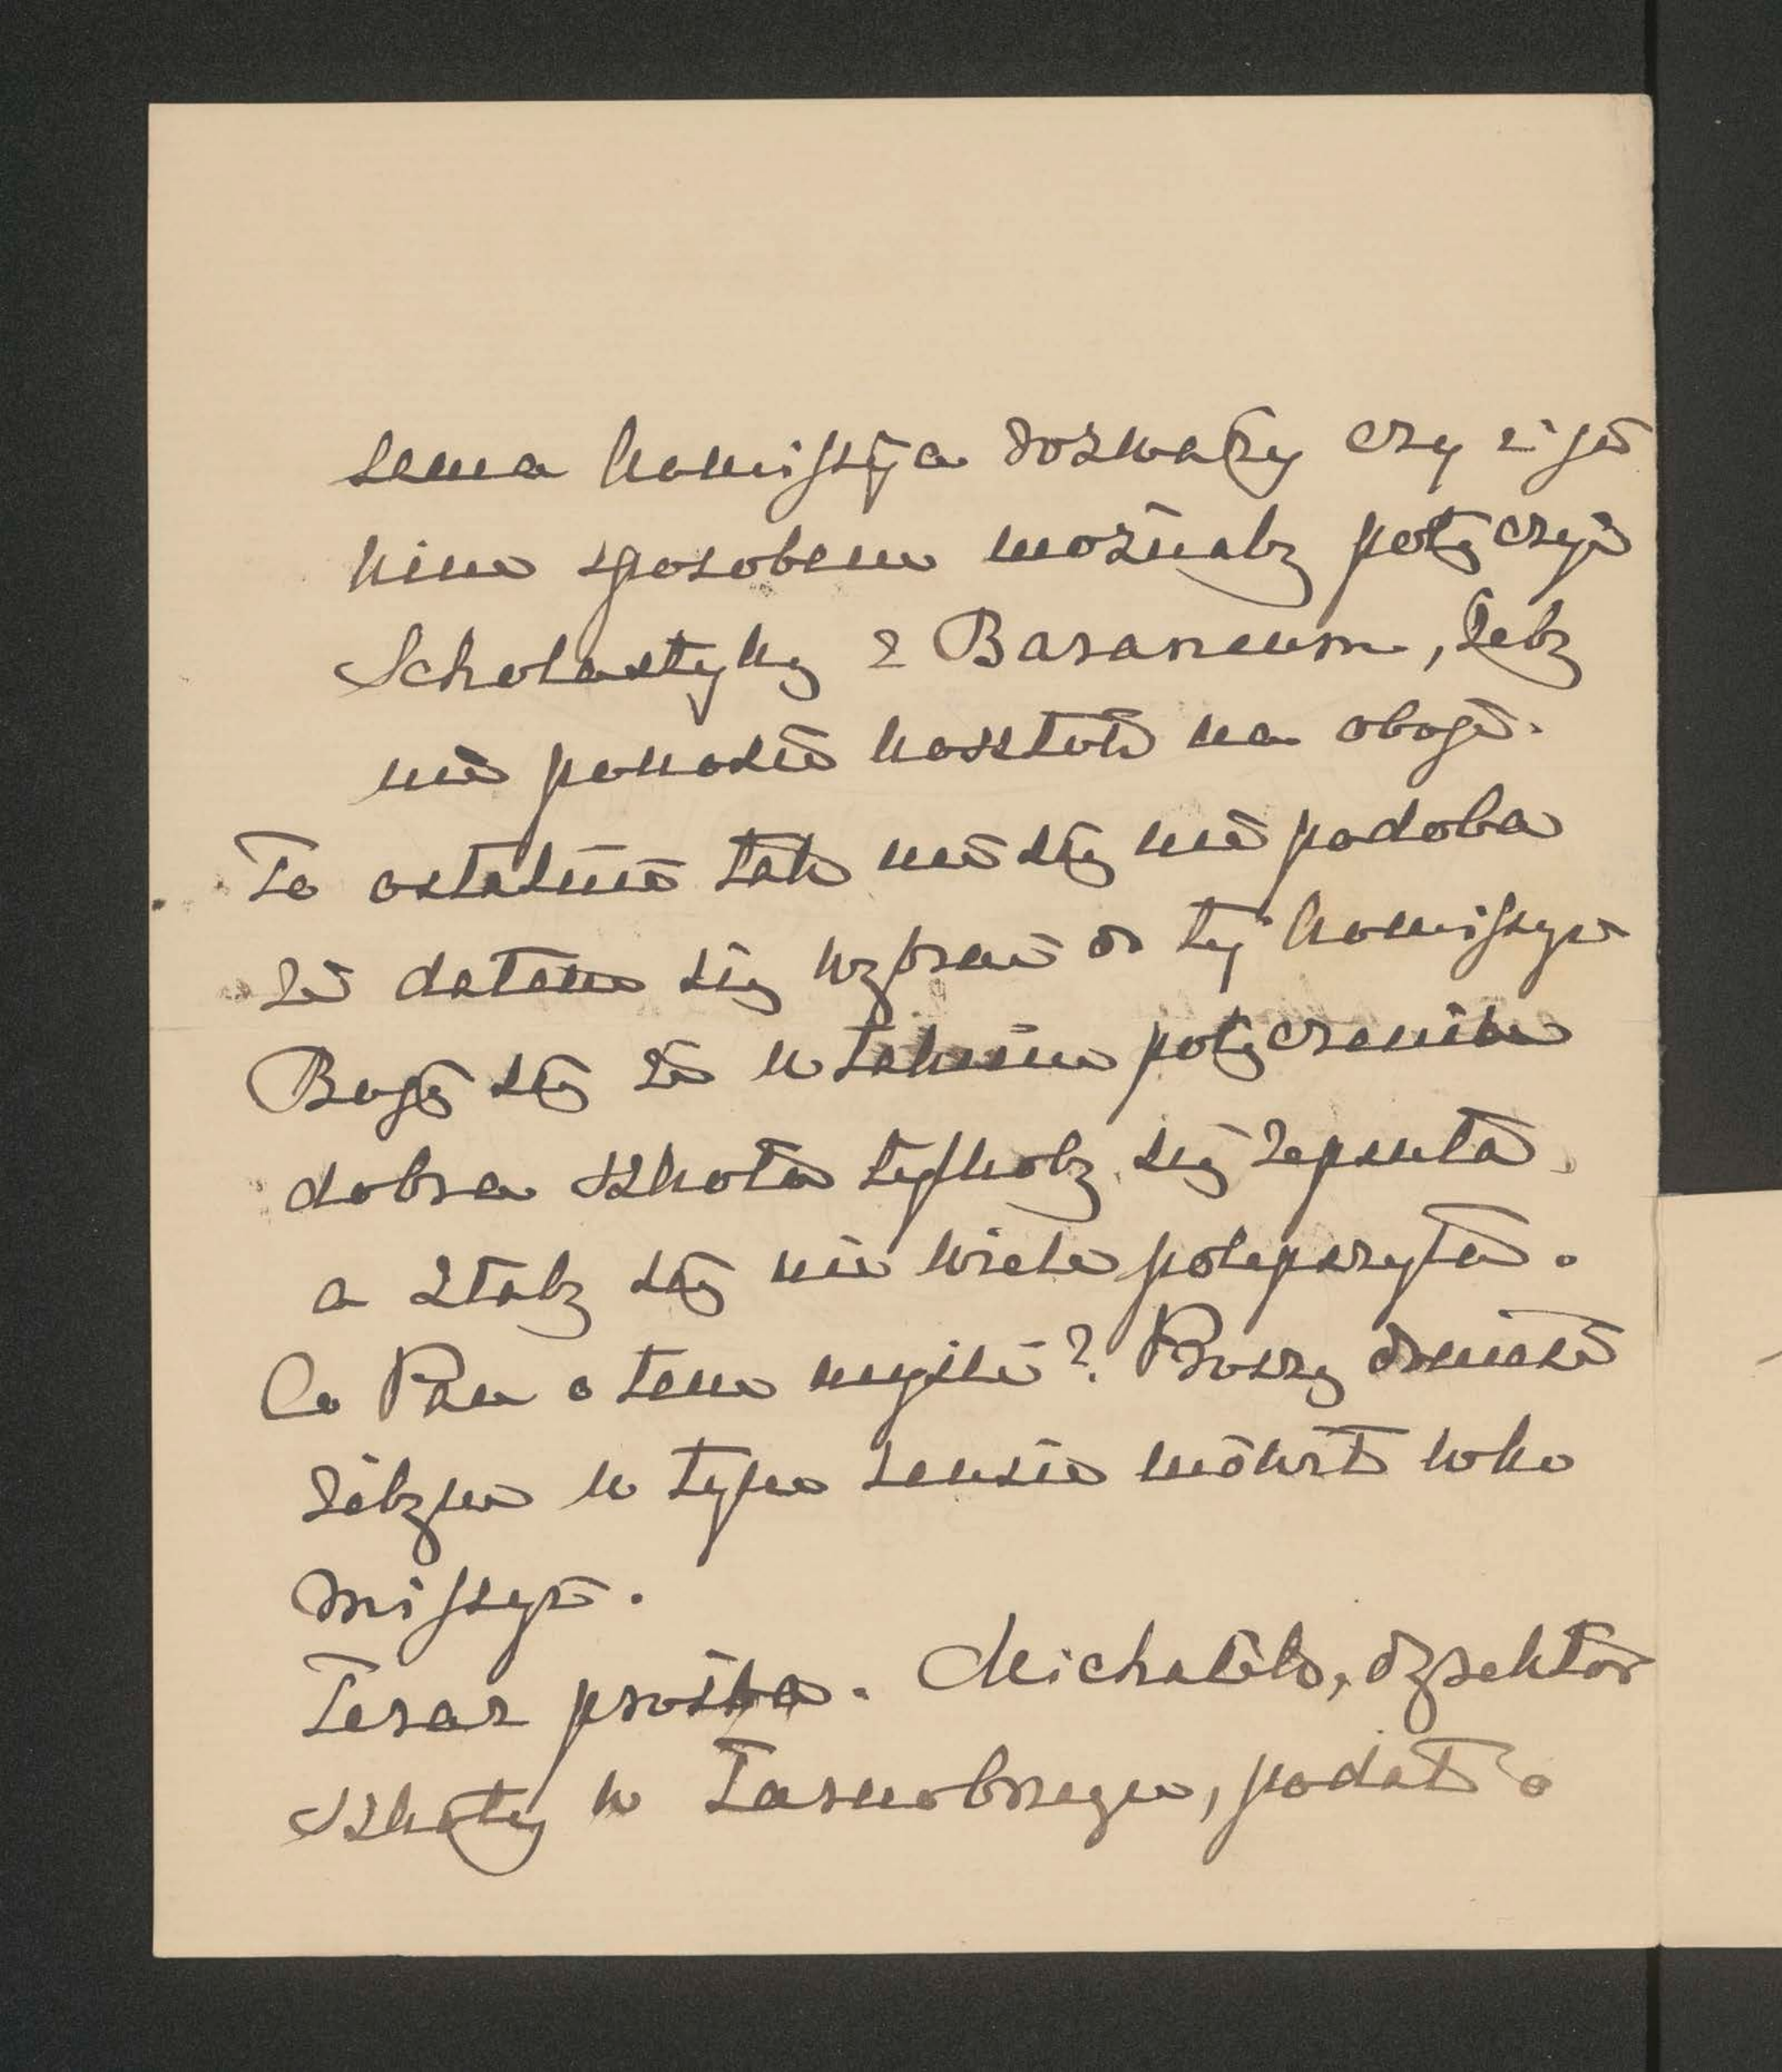 sama komissya rozważy czy i ja
kim sposobem możnaby połączyć
Scholastykę z Baraneum, żeby
nie ponosić kosztów na oboje.
To ostatnie tak mi się nie podoba
że dałem się wybrać do tej komissyi
Boję się że w takim połączeniu
dobra szkoła tylkoby się zepsuła
a złaby się nie wiele polepszyła.
Co Pan o tem myśli? Proszę donieść
żebym w tym sensie mówił w ko
missyi.
Teraz prośba. Michałek, dyrektor
szkoły w Tarnobrzegu, podał o